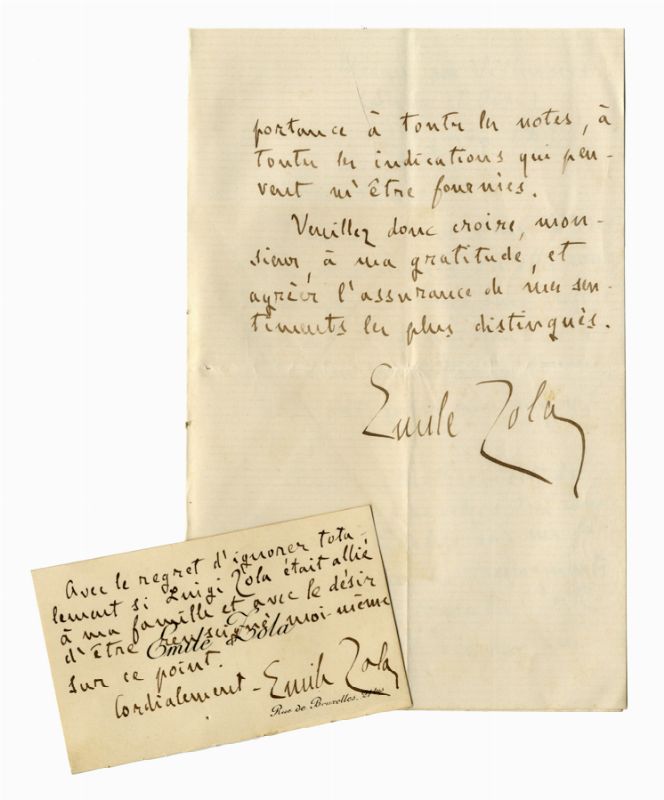 portance à toutes les notes, à
toutes les indications qui peu-
vent m'être fournies.
Veuillez donc croire, mon-
sieur, à ma gratitude, et
agréer l'assurance de mes sen-
timents les plus distingués.
Emile Zola
Avec le regret d'ignorer tota-
lement si Luigi Zola était allié
à ma famille et avec le désir
d'être renseigné moi-même
sur ce point.
Cordialement - Emile Zola
Emile Zola
Rue de Bruxelles, 21 bis